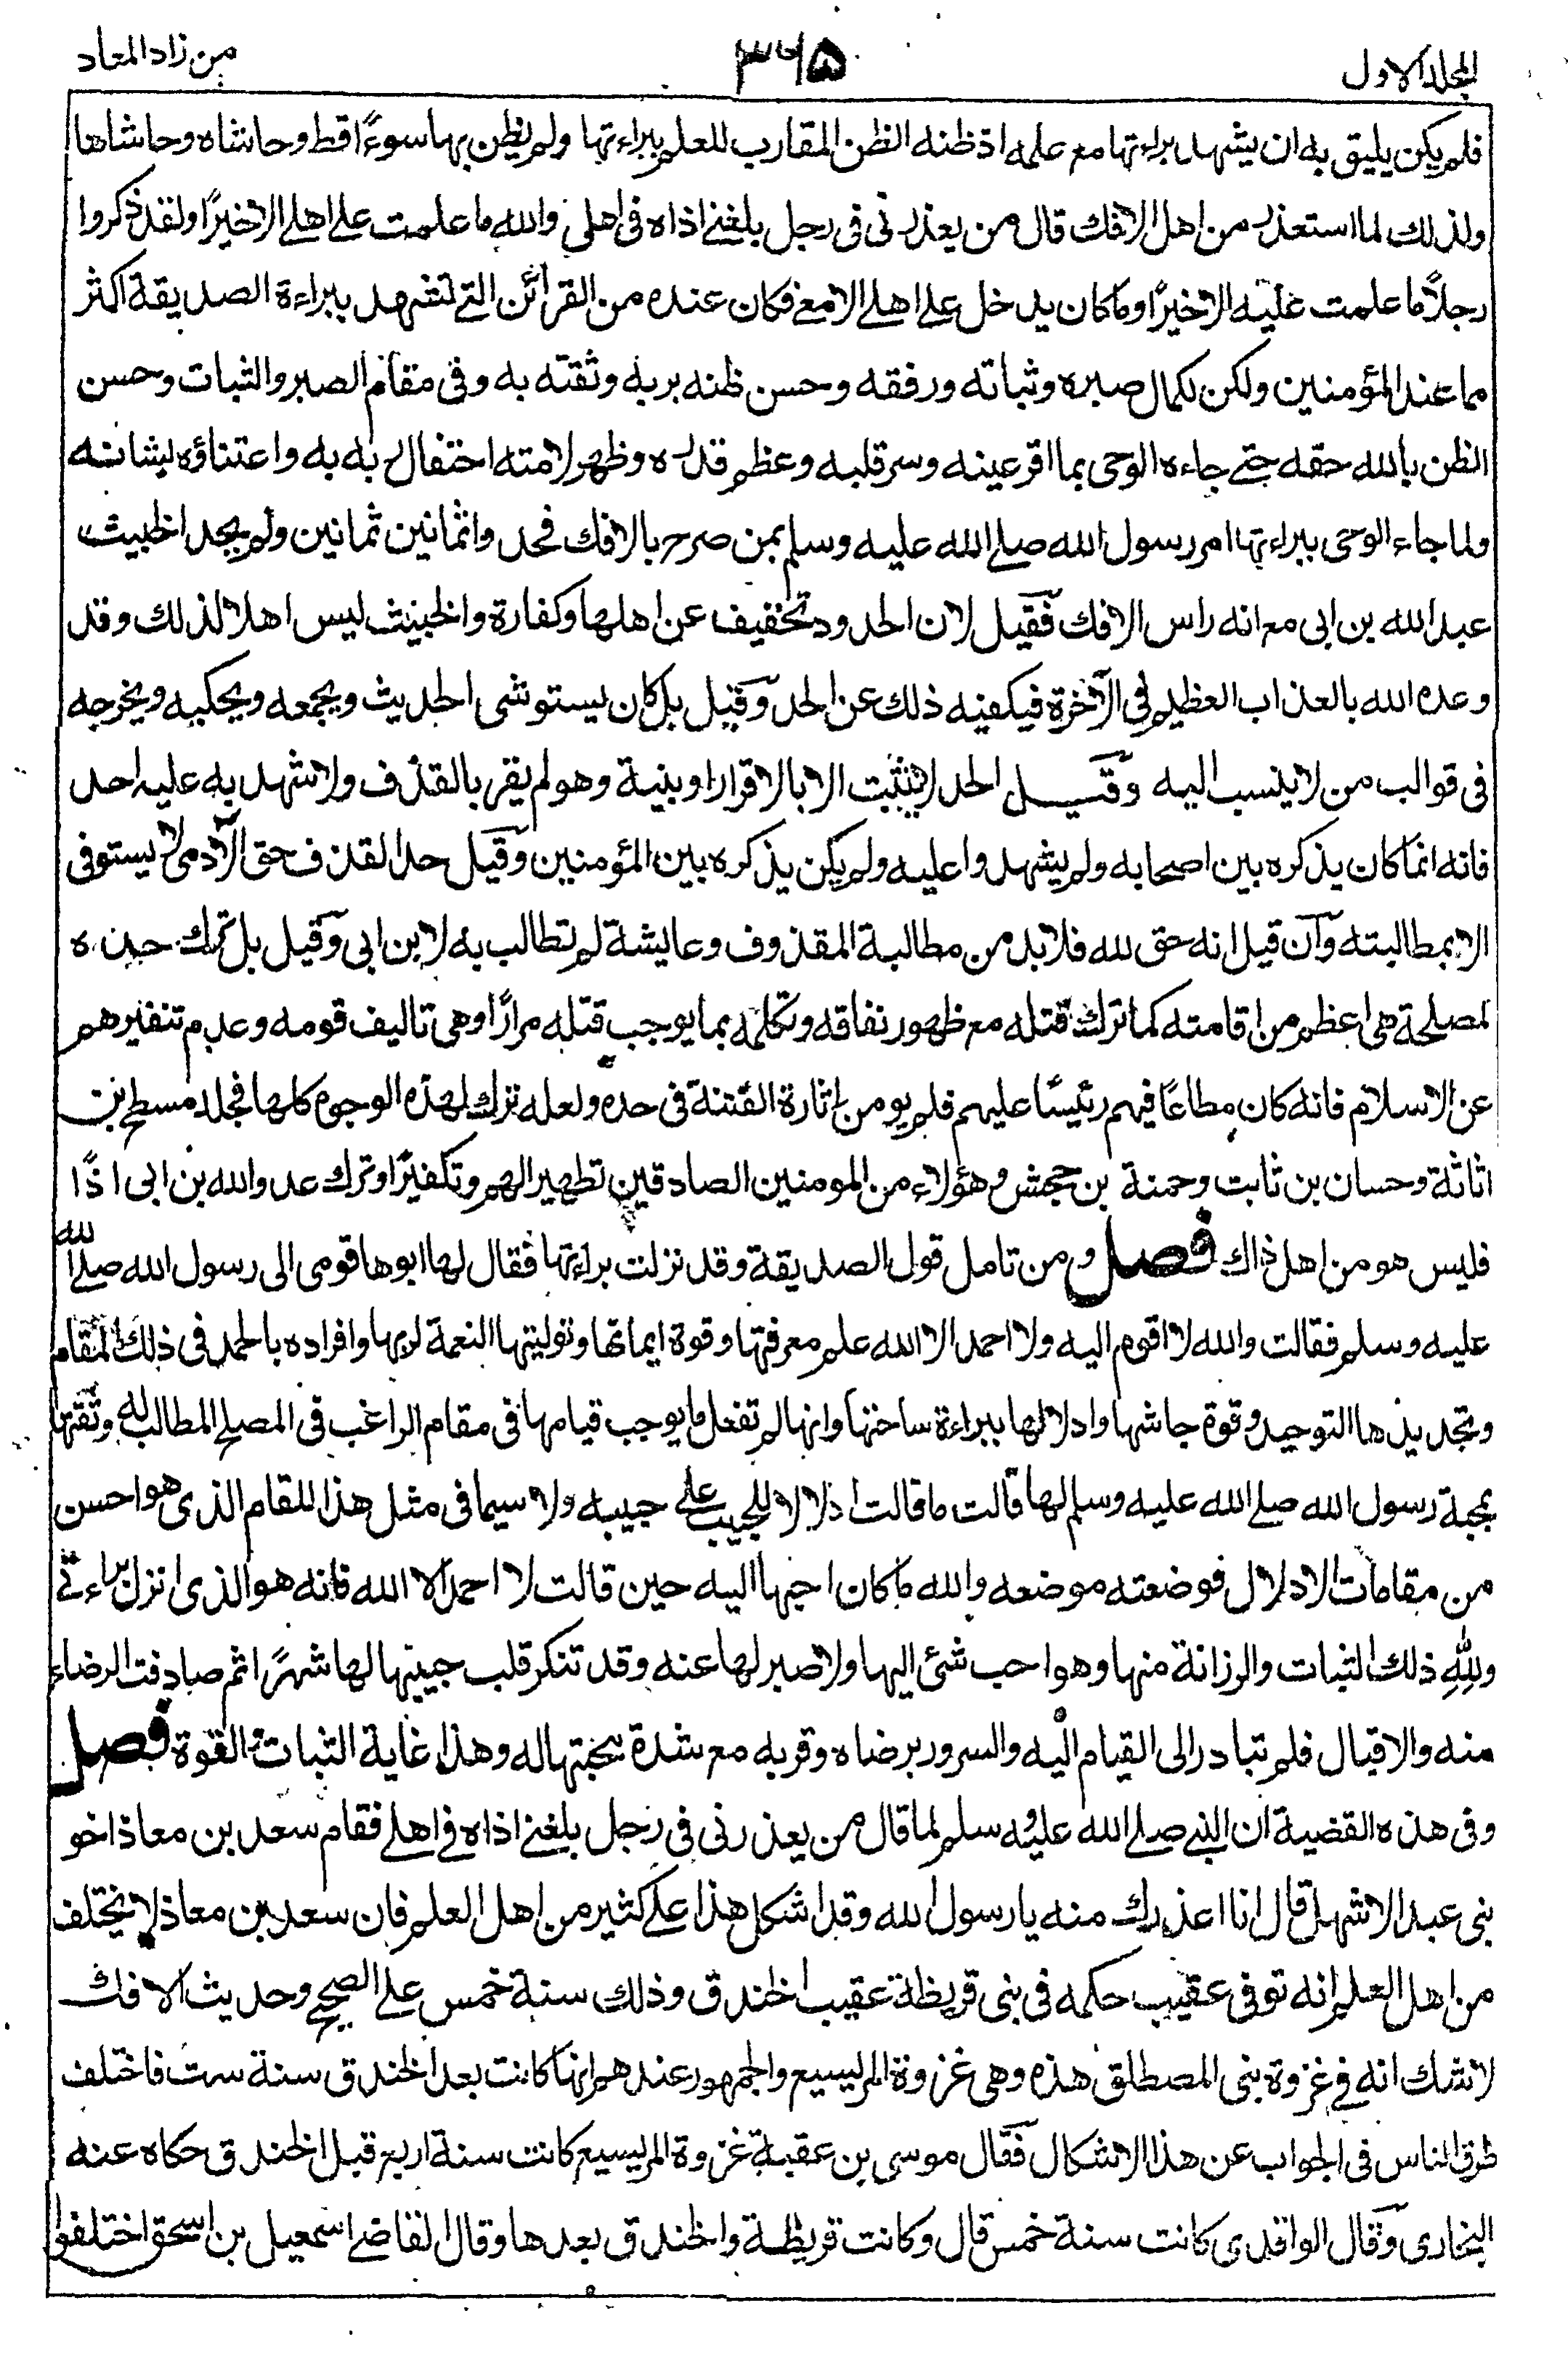 المجلد الاول
٣٦٥
من زاد المعاد
فلم يكن يليق به ان يشهد براءتها مع علمه اذ ظنه الظن المقارب للعلم ببراءتها ولم يظن بها سوءًا قط وحاشاه وحاشاها
ولذلك لما استعذر من اهل الافك قال من يعذرنى فى رجل بلغنے اذاه فى اهلى والله ما علمت علے اهلے الا خيرًا ولقد ذكروا
رجلًا ما علمت عليه الا خيرًا وما كان يدخل علے اهلے الا معے فكان عنده من القرائن التے تشهد ببراءة الصديقة اكثر
مما عند المؤمنين ولكن لكمال صبره وثباته ورفقه وحسن ظنه بربه وثقته به وفى مقام الصبر والثبات وحسن
الظن بالله حقه حتے جاءه الوحى بما اقر عينه وسر قلبه وعظم قدره وظهر لامته احتفال ربه به واعتناؤه بشانه
ولما جاء الوحى ببراءتها امر رسول الله صلے الله عليه وسلم بمن صرح بالافك فحدوا ثمانين ثمانين ولم يحد الخبيث
عبد الله بن ابى مع انه راس الافك فقيل لان الحدود تخفيف عن اهلها وكفارة والخبيث ليس اهلا لذلك وقد
وعده الله بالعذاب العظيم فى الآخرة فيكفيه ذلك عن الحد وقيل بل كان يستوشى الحديث ويجمعه ويحكيه ويخرجه
فى قوالب من لا ينسب اليه وقيل الحد لا يثبت الا بالاقرار او بنية وهو لم يقر بالقذف ولا شهد به عليه احد
فانه انما كان يذكره بين اصحابه ولم يشهدوا عليه ولم يكن يذكره بين المؤمنين وقيل حد القذف حق الآدمى لا يستوفى
الا بمطالبته وان قيل انه حق لله فلا بد من مطالبة المقذوف وعايشة لم تطالب به لابن ابى وقيل بل ترك حده
لمصلحة هى اعظم من اقامته كما ترك قتله مع ظهور نفاقه وتكلمه بما يوجب قتله مرارًا وهى تاليف قومه وعدم تنفيرهم
عن الاسلام فانه كان مطاعًا فيهم رئيسًا عليهم فلم يومن اثارة الفتنة فى حده ولعله ترك لهذه الوجوه كلها فجلد مسطح بن
اثاثة وحسان بن ثابت وحمنة بن جحش وهؤلاء من المومنين الصادقين تطهيرا لهم وتكفيرًا وترك عدو الله بن ابى اذًا
فليس هو من اهل ذاك فصل ومن تامل قول الصديقة وقد نزلت براءتها فقال لها ابوها قومى الى رسول الله صلے الله
عليه وسلم فقالت والله لا اقوم اليه ولا احمد الا الله علم معرفتها وقوة ايمانها وتوليتها النعمة لربها وافراده بالحمد فى ذلك المقام
وتجديدها التوحيد وقوة جاشها وادلالها ببراءة ساحتها وانها لم تفعل ما يوجب قيامها فى مقام الراغب فى الصلح المطالب له وثقتها
بمحبة رسول الله صلے الله عليه وسلم لها قالت ما قالت ادلالا للحبيب علے حبيبه ولا سيما فى مثل هذا المقام الذى هو احسن
من مقامات الادلال فوضعته موضعه والله ما كان احبها اليه حين قالت لا احمد الا الله فانه هو الذى انزل براءتے
ولله ذلك الثبات والرزانة منها وهو احب شئ اليها ولا صبر لها عنه وقد تنكر قلب حبيبها لها شهرًا ثم صادفت الرضاء
منه والاقبال فلم تبادر الى القيام اليه والسرور برضاه وقربه مع شدة محبتها له وهذا غاية الثبات والقوة فصل
وفى هذه القضية ان النبے صلے الله عليه وسلم لما قال من يعذرنى فى رجل بلغنے اذاه فے اهلے فقام سعد بن معاذ اخو
بنى عبد الاشهل قال انا اعذرك منه يا رسول الله وقد اشكل هذا علے كثير من اهل العلم فان سعد بن معاذ لا يختلف
من اهل العلم انه توفى عقيب حكمه فى بنى قريظة عقيب الخندق وذلك سنة خمس علے الصحيح وحديث الافك
لا شك انه فے غزوة بنى المصطلق هذه وهى غزوة المريسيع والجمهور عندهم انها كانت بعد الخندق سنة ست فاختلف
طرق الناس فى الجواب عن هذا الاشكال فقال موسى بن عقبة غزوة المريسيع كانت سنة اربع قبل الخندق حكاه عنه
البخارى وقال الواقدى كانت سنة خمس قال وكانت قريظة والخندق بعدها وقال القاضے اسمعيل بن اسحق اختلفوا